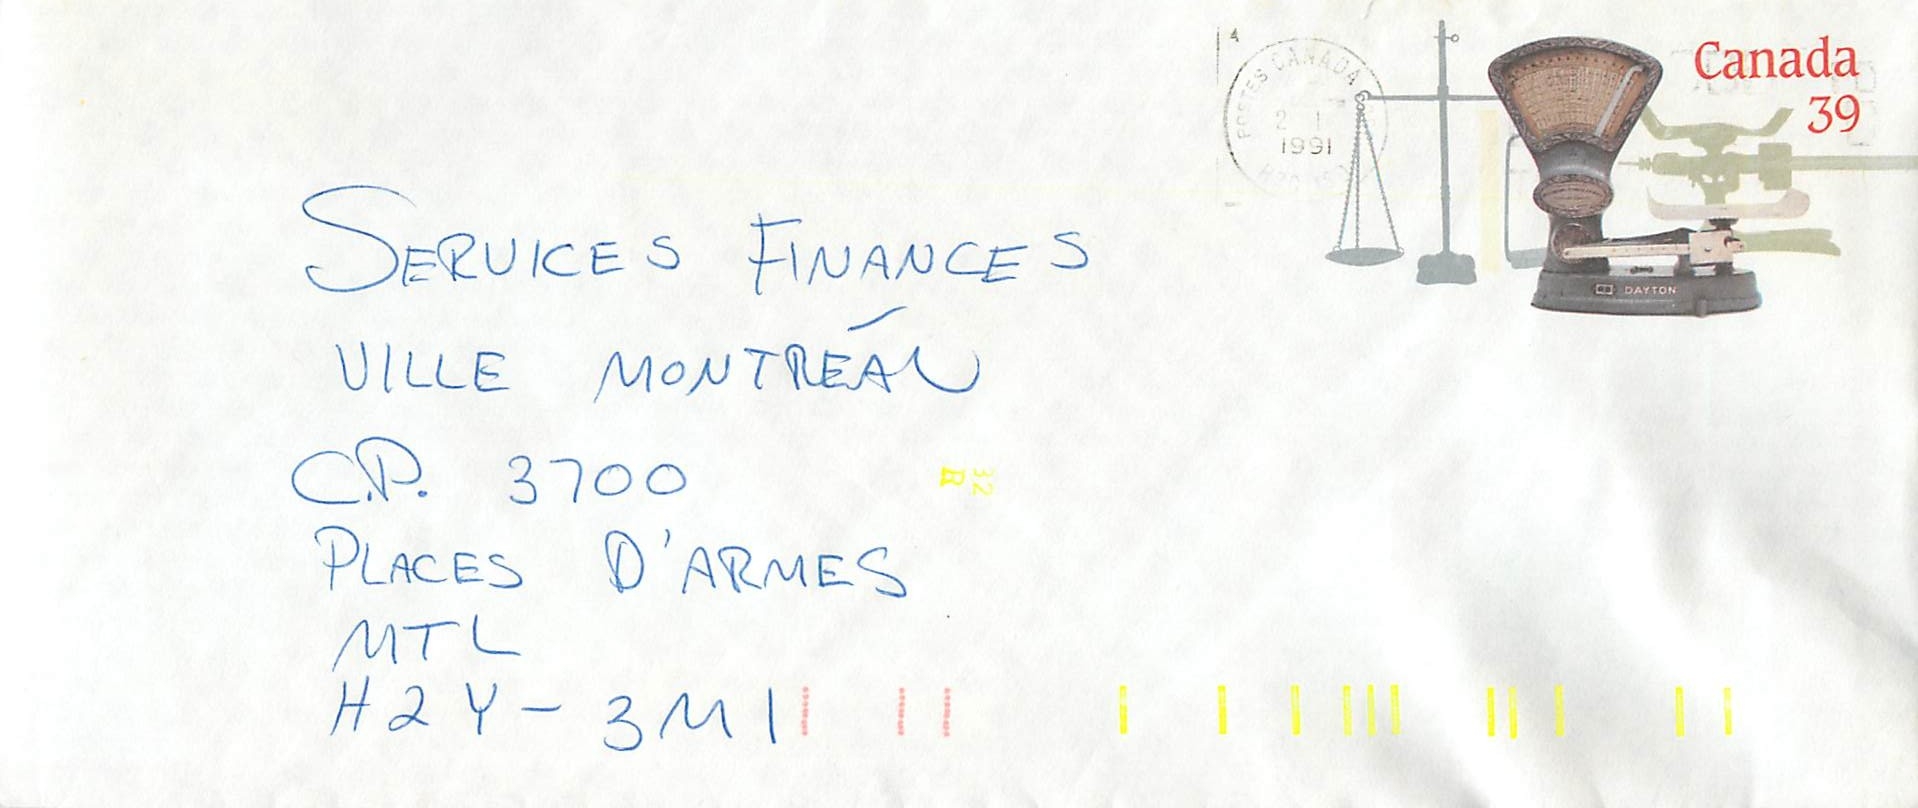 Canada
39
4
POSTES CANADA
2 1
1991
SERVICES FINANCES
VILLE MONTRÉAL
C.P. 3700
32
B
PLACES D'ARMES
MTL
H2Y-3M1
DAYTON